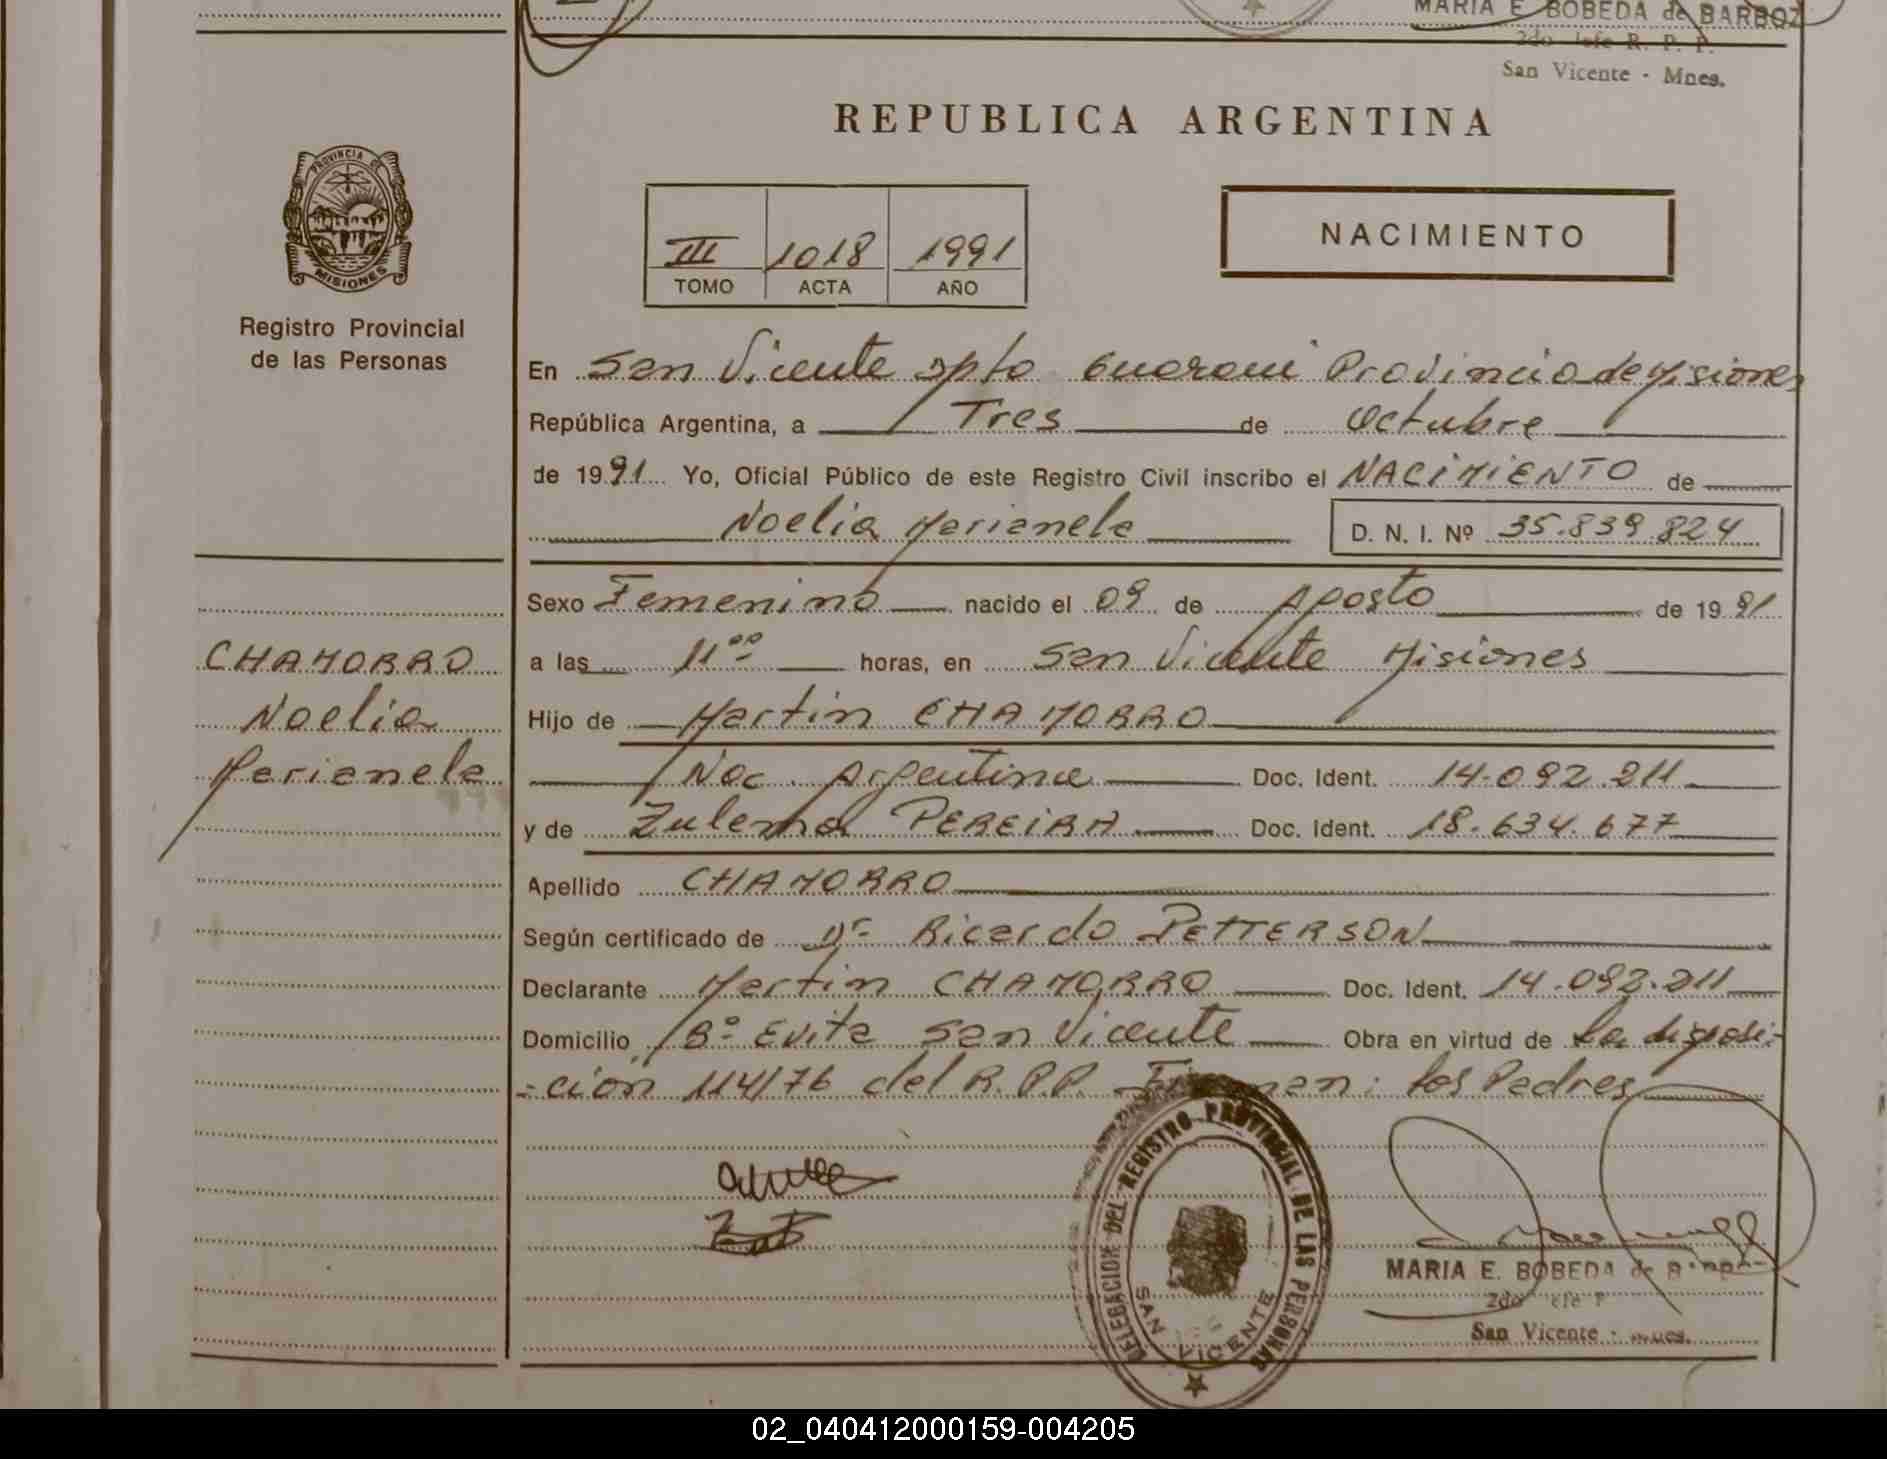 MARIA E. BOBEDA de BARBOZ
2do Jefe R. P. P.
San Vicente - Mnes.
REPUBLICA ARGENTINA
PROVINCIA DE
MISIONES
Registro Provincial
de las Personas
III 1018 1991
TOMO ACTA AÑO
NACIMIENTO
En San Vicente Dpto Guarani Provincia de Misiones
República Argentina, a Tres de Octubre
de 1991 Yo, Oficial Público de este Registro Civil inscribo el NACIMIENTO de
Noelia Marianela D. N. I. Nº 35.839.824
Sexo Femenino nacido el 09 de Agosto de 1991
CHAMORRO
Noelia
Marianela
a las 11ºº horas, en San Vicente Misiones
Hijo de Martin CHAMORRO
Nac. Argentina Doc. Ident. 14.092.211
y de Zulema PEREIRA Doc. Ident. 18.634.677
Apellido CHAMORRO
Según certificado de Dr Ricardo PETTERSON
Declarante Martin CHAMORRO Doc. Ident. 14.092.211
Domicilio Bº Evita San Vicente Obra en virtud de La disposi-
-ción 114/76 del R.P.P. Firman: los Padres
DELEGACION DEL REGISTRO PROVINCIAL DE LAS PERSONAS
SAN VICENTE
MARIA E. BOBEDA de
2do
San Vicente - Mnes.
02_040412000159-004205